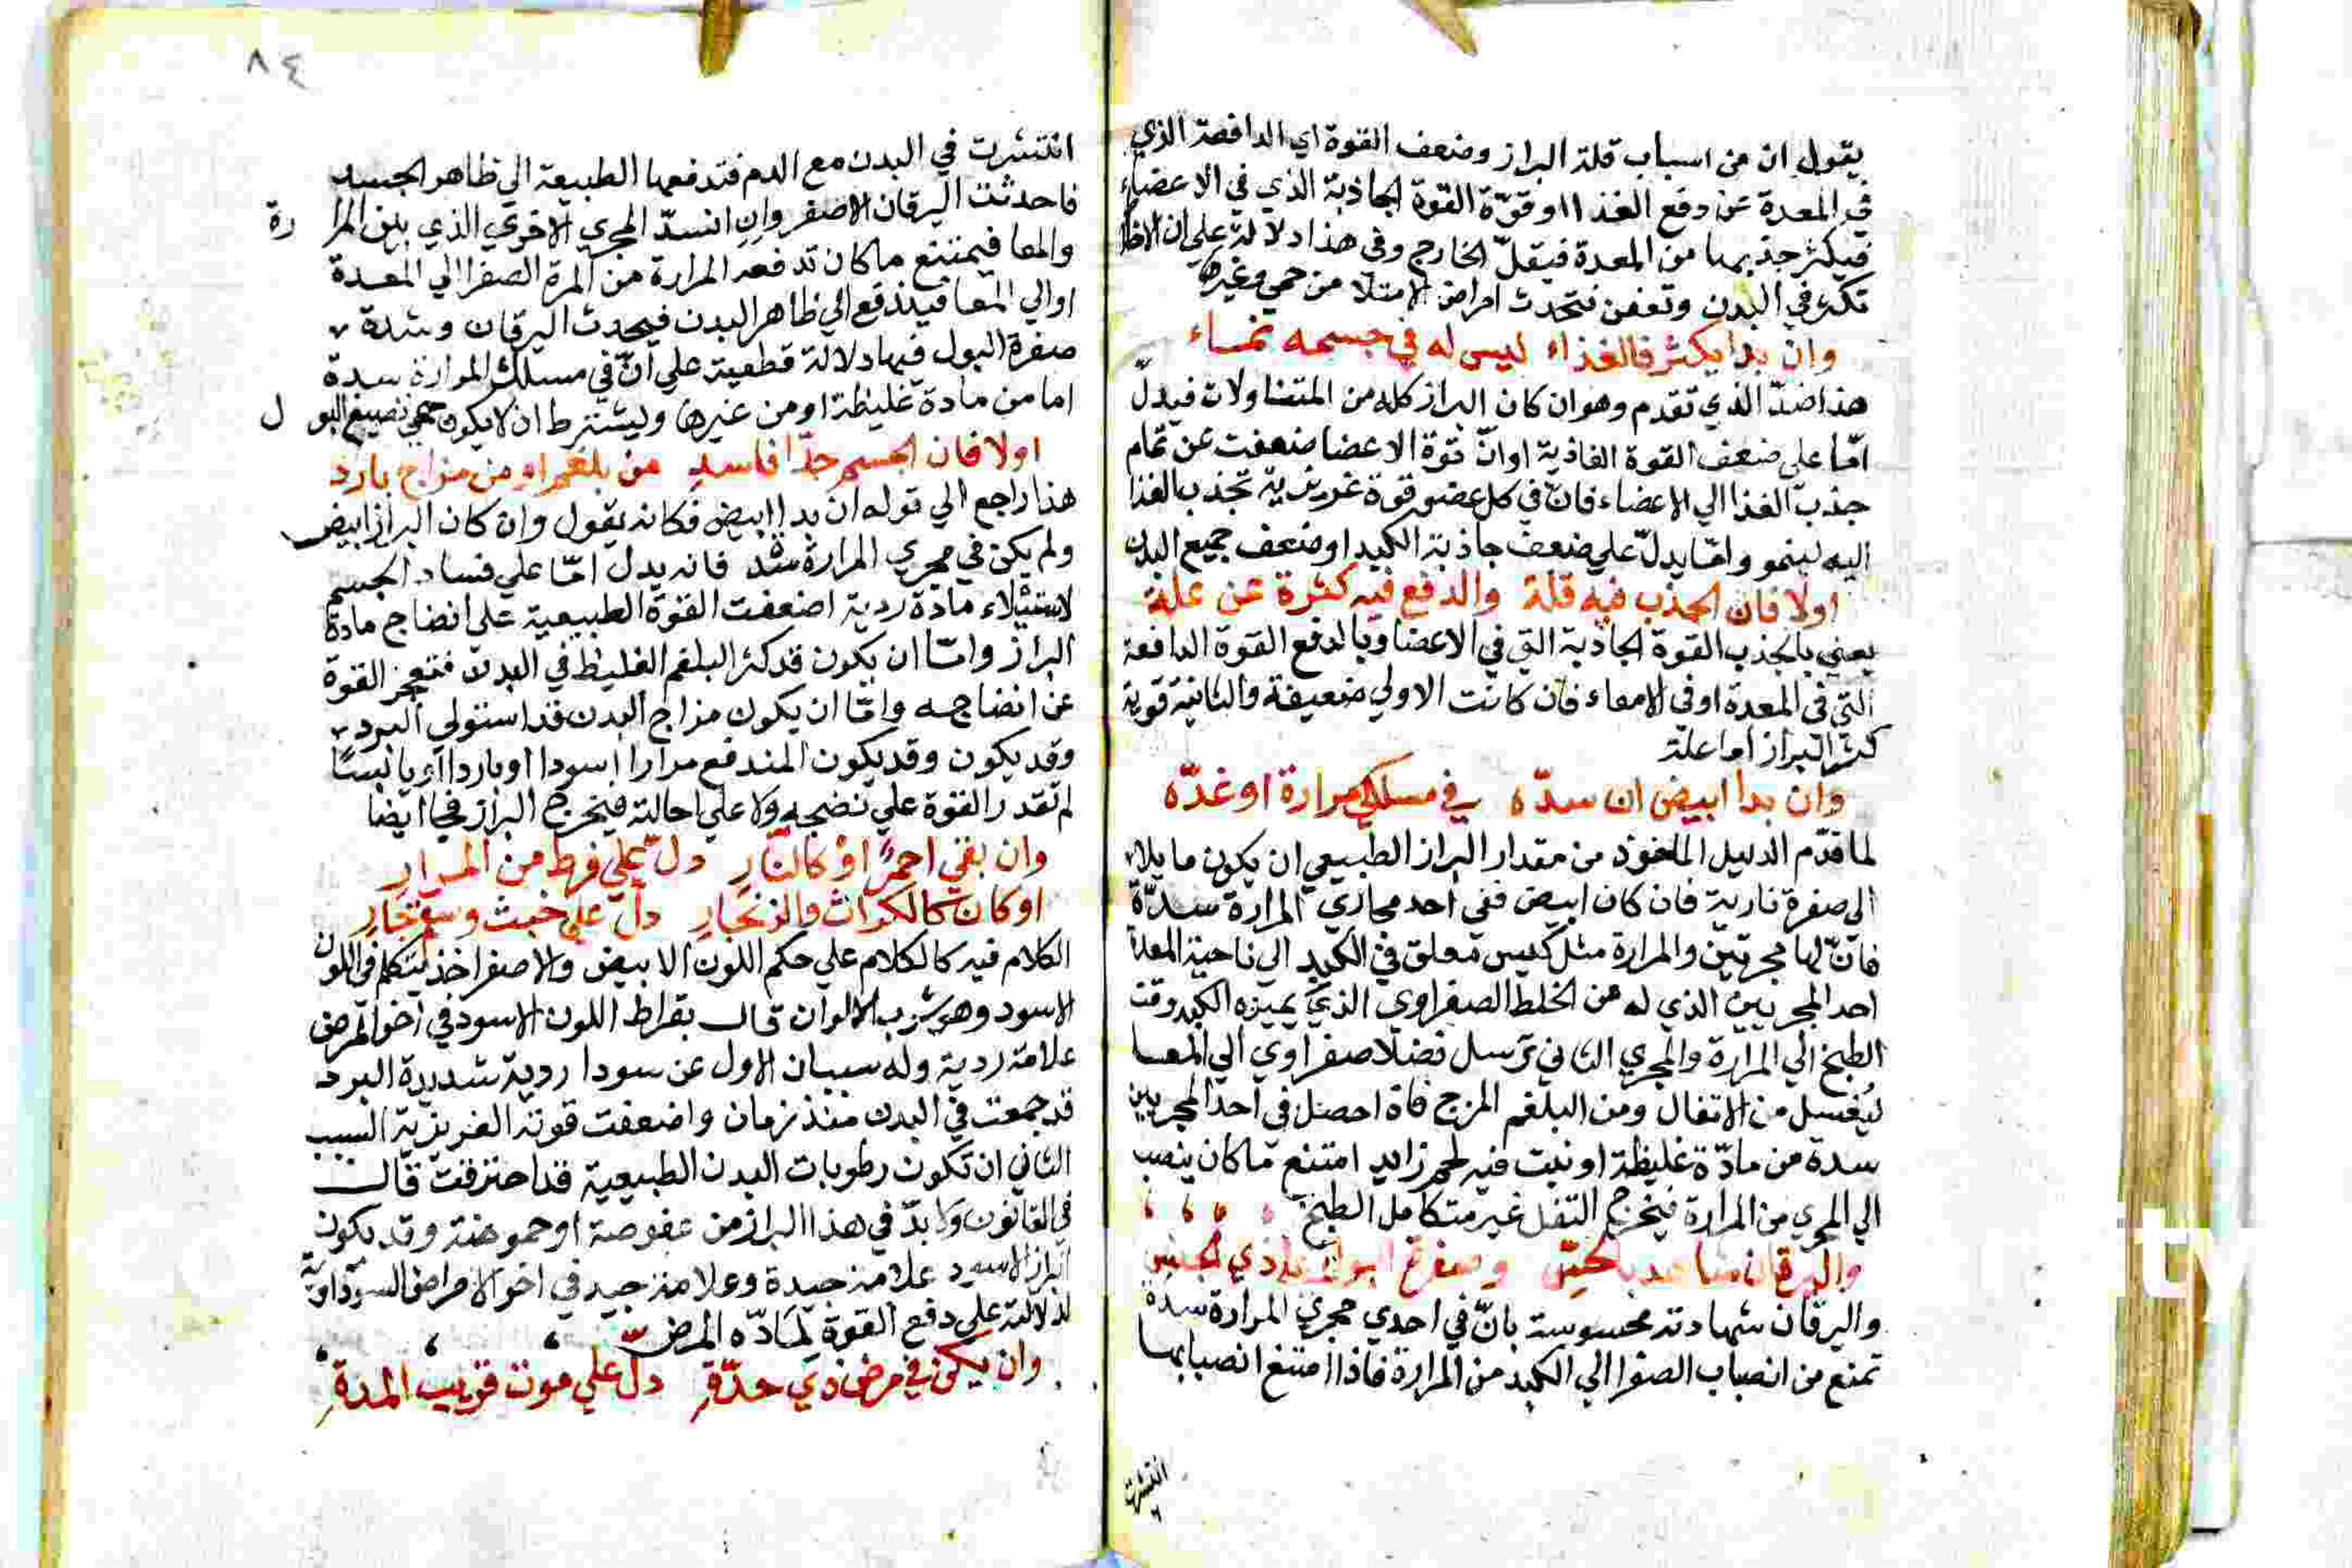 يقول ان من اسباب قلة البراز وضعف القوة اي الدافعة الذي
في المعدة عن دفع الغذا او قوّة القوة الجاذبة الذي في الاعضاء
فيكثر جذبها من المعدة فيقلّ الخارج وفي هذا دلالة علي ان الاخلا
تكثر في البدن وتعفن فتحدث امراض الامتلا من حمي وغيرها
وان بدا يكثر فالغذاء ليس له في جسمه نماء
هذا ضدّ الذي تقدم وهو ان كان البراز كله من المتناولات فيدلّ
امّا على ضعف القوة الغاذية او انّ قوة الاعضا ضعفت عن تمام
جذب الغذا الي الاعضاء فانّ في كل عضو قوة غريزية تجذب الغذا
اليه لينمو وامّا يدلّ علي ضعف جاذبة الكبد او ضعف جميع البدن
اولا فان الجذب فيه قلة والدفع فيه كثرة عن علة
يعني بالجذب القوة الجاذبة التي في الاعضا وبالدفع القوة الدافعة
التي في المعدة او في الامعاء فان كانت الاولي ضعيفة والثانية قوية
كثر البراز او اعلة
وان بدا ابيض ان سدّه في مسلكي مرارة او غدّه
لما قدّم الدليل الماخوذ من مقدار البراز الطبيعي ان يكون مايلا
الى صفرة نارية فان كان ابيض ففي احد مجاري المرارة سدّة
فانّ لها مجريين والمرارة مثل كيس معلق في الكبد الي ناحية المعدة
احد المجريين الذي له من الخلط الصفراوي الذي يميزه الكبد وقت
الطبخ الي المرارة والمجري الثاني ترسل فضلا صفراوي الي المعا
ليغسل من الاتفال ومن البلغم المزج فاذا حصل في احد المجريين
سدة من مادّة غليظة او نبت فيه لحم زايد امتنع ما كان ينصب
الي المجري من المرارة فيخرج التفل غير متكامل الطبخ
واليرقان شاهد بالحسّ
واليرقان شهادته محسوسة بانّ في احدي مجري المرارة سدة
تمنع من انصباب الصفرا الي الكبد من المرارة فاذا امتنع انصبابها
انتشرت
٨٤
انتشرت في البدن مع الدم فتدفعها الطبيعة الي ظاهر الجسد
فاحدثت اليرقان الاصفر وان انسدّ المجري الاخري الذي بين المرارة
والمعا فيمتنع ما كان تدفعه المرارة من المرة الصفرا الي المعدة
او الي المعا فيندفع الي ظاهر البدن فيحدث اليرقان وشدة
صفرة البول فيها دلالة قطعية علي انّ في مسلك المرارة سدة
اما من مادة غليظة او من غيرها وليشترط ان لا يكون حمي تصبغ البول
اولا فان الجسم جدّا فاسد من بلغم او من مزاج بارد
هذا راجع الي قوله ان بدا ابيض فكانه يقول وان كان البراز ابيض
ولم يكن في مجري المرارة سدد فانه يدل امّا علي فساد الجسم
لاستيلاء مادة ردية اضعفت القوة الطبيعية على انضاج مادة
البراز وامّا ان يكون قد كثر البلغم الغليظ في البدن فتعجز القوة
عن انضاجه وامّا ان يكون مزاج البدن قد استولي البرد
وقد يكون وقد يكون المندفع مرارا اسودا او باردا او يابسًا
لم تقدر القوة علي نضجه ولا علي احالته فيخرج البراز فجا ايضا
وان بقي احمرً او كالنّارِ دل علي فرط من المرارِ
او كان كالكراث والزنجارِ دلّ علي خبث وسمّ جارِ
الكلام فيه كالكلام علي حكم اللون الابيض والاصفر اخذ ليتكلم في اللون
الاسود وهو شرب الالوان قال بقراط اللون الاسود في اخر المرض
علامة ردية وله سببان الاول عن سودا ردية شديدة البرد
قد جمعت في البدن منذ زمان واضعفت قوته الغريزية السبب
الثاني ان تكون رطوبات البدن الطبيعية قد احترقت قال
في القانون ولا بدّ في هذا البراز من عفوصة او حموضة وقد يكون
البراز الاسود علامة جيدة وعلامة جيد في اخر الامراض السوداوية
لدلالته علي دفع القوة لمادّه المرض
وان يكن في مرض ذي حدّةِ دل علي موت قريب المدةِ